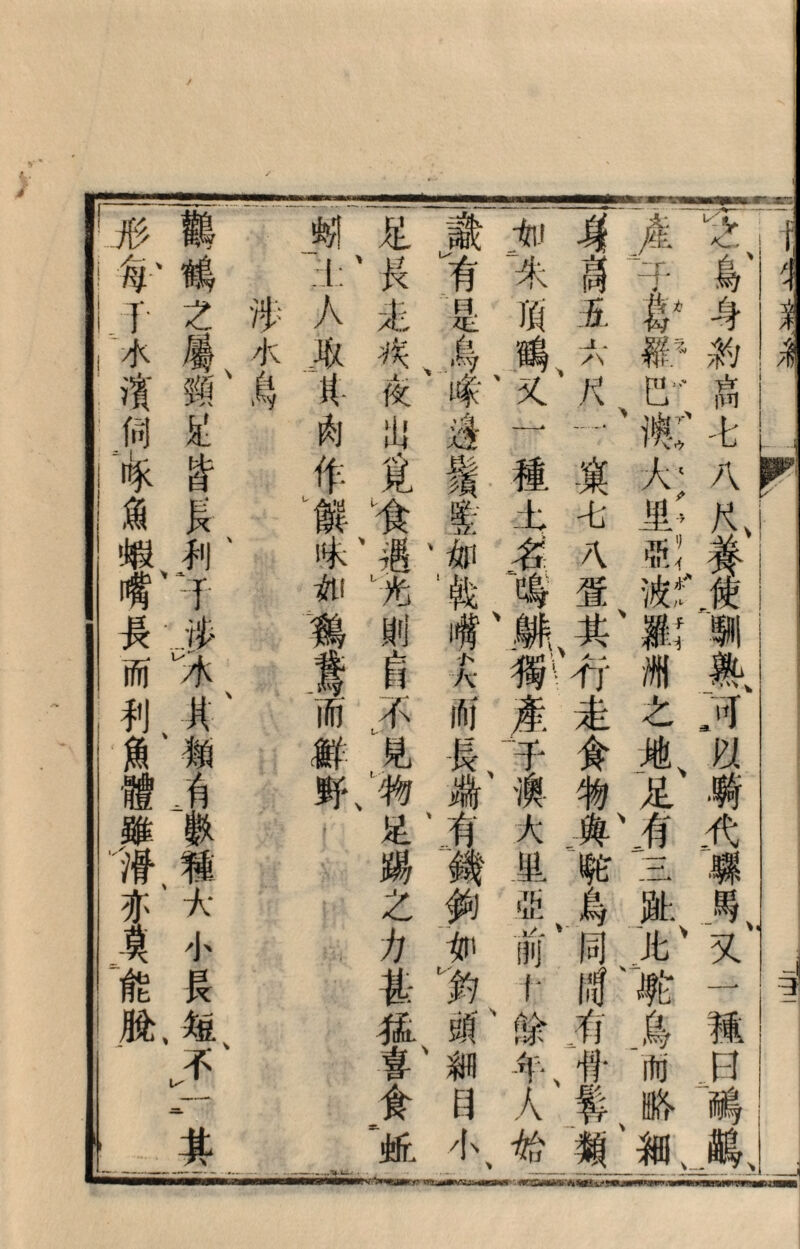 之、鳥身約高七八尺、養使馴熟、可以騎代騾馬、又一種曰鴯鶓、
產于葛羅巴澳大里亞波羅洲之地、足有三趾、比駝鳥而略細、
身高五六尺、一窠七八蛋、其行走食物、與駝鳥同、間有骨髻、類
如朱頂鶴、又一種土名鳴鶝、獨產于澳大里亞、前十餘年、人始
識有是鳥、喙邊鬚豎如戟、嘴大而長、端有鐵鉤如釣、頭細目小、
足長走疾、夜出覓食、遇光則盲不見物、足踢之力甚猛、喜食蚯
蚓、土人取其肉作饌、味如鷄鵞而鮮野、
涉水鳥
鸛鶴之屬、頸足皆長、利于涉水、其類有數種、大小長短、不一其
形、每于水濱伺啄魚蝦、嘴長而利、魚體雖滑、亦莫能脫、